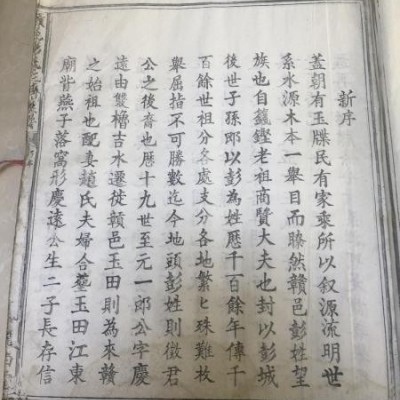 新序
蓋朝有玉牒民有家乘所以叙源流明世
系水源木本一舉目而瞭然贛邑彭姓望
族也自籛鏗老祖商贊大夫也封以彭城
後世子孫郎以彭為姓歷千百餘年傳千
百餘世祖分各處支分各地繁匕殊難枚
舉屈指不可勝數迄今地頭彭姓則徵君
公之後裔也歷十九世至元一郎公字慶
遠由雙櫓吉水遷徙贛邑玉田則為來贛
之始祖也配妻趙氏夫婦合塟玉田江東
廟背燕子落窩形慶遠公生二子長存信